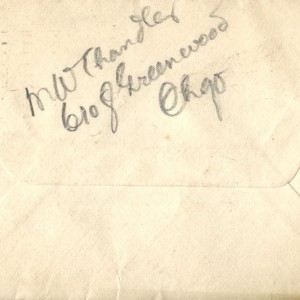 M W Thandler
6108 Greenwood
Chgo